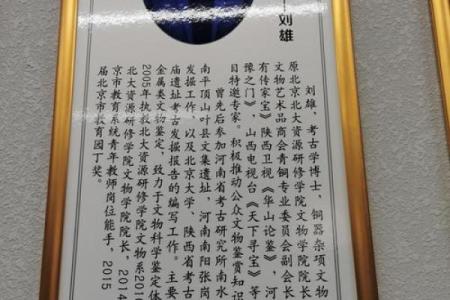 刘雄
刘雄，考古学博士，铜器杂项文物
原北京北大资源研修学院文物学院院长
文物艺术品商会青铜专业委员会副会长
有传家宝》陕西卫视《华山论鉴》，河
豫之门》，山西电视台《天下寻宝》等
目特邀专家。积极推动公众文物鉴赏知识
曾先后参加河南省考古研究所南水
南平顶山叶县文集遗址，河南南阳张岗
发掘工作，以及北京大学、陕西省考古
庙遗址考古发掘报告的编写工作。主要
金属类文物鉴定，致力于文物科学鉴定体
2005年执教北大资源研修学院文物系201
北大资源研修学院文物学院院长，2014
京市教育系统青年教师岗位能手，2015
届北京市教育园丁奖。